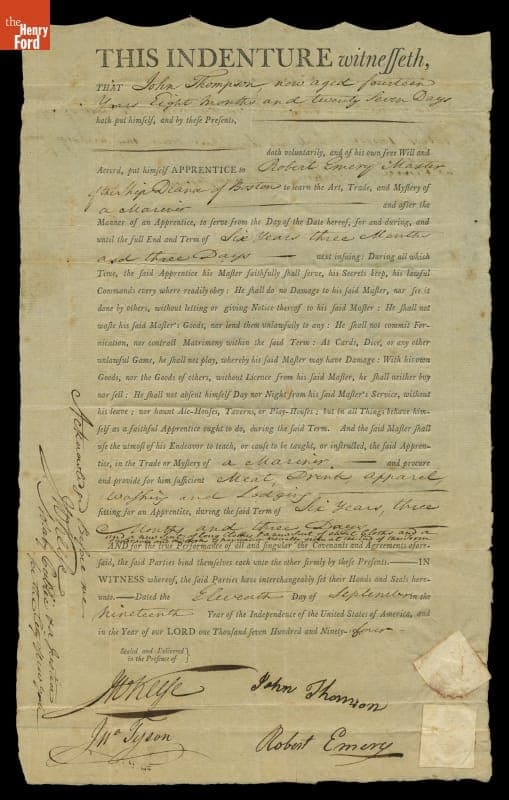 the
Henry
Ford
THIS INDENTURE witneſſeth,
THAT John Thompson, now aged fourteen
Years Eight Months and twenty Seven Days
hath put himſelf, and by theſe Preſents,
doth voluntarily, and of his own free Will and
Accord, put himſelf APPRENTICE to Robert Emery Master
of the Ship Diana of Boston to learn the Art, Trade, and Myſtery of
a Mariner and after the
Manner of an Apprentice, to ſerve from the Day of the Date hereof, for and during, and
until the full End and Term of Six Years three Months
and three Days next inſuing: During all which
Time, the ſaid Apprentice his Maſter faithfully ſhall ſerve, his Secrets keep, his lawful
Commands every where readily obey: He ſhall do no Damage to his ſaid Maſter, nor ſee it
done by others, without letting or giving Notice thereof to his ſaid Maſter: He ſhall not
waſte his ſaid Maſter's Goods, nor lend them unlawfully to any: He ſhall not commit For-
nication, nor contract Matrimony within the ſaid Term: At Cards, Dice, or any other
unlawful Game, he ſhall not play, whereby his ſaid Maſter may have Damage: With his own
Goods, nor the Goods of others, without Licence from his ſaid Maſter, he ſhall neither buy
nor ſell: He ſhall not abſent himſelf Day nor Night from his ſaid Maſter's Service, without
his leave; nor haunt Ale-Houſes, Taverns, or Play-Houſes; but in all Things behave him-
ſelf as a faithful Apprentice ought to do, during the ſaid Term. And the ſaid Maſter ſhall
uſe the utmoſt of his Endeavor to teach, or cauſe to be taught, or inſtructed, the ſaid Appren-
tice, in the Trade or Myſtery of a Mariner and procure
and provide for him ſufficient Meat, Drink Apparel,
Washing and Lodging
fitting for an Apprentice, during the ſaid Term of Six Years, three
Months and three Days
and a new suit of
AND for the true Performance of all and ſingular the Covenants and Agreements afore-
ſaid, the ſaid Parties bind themſelves each unto the other firmly by theſe Preſents. IN
WITNESS whereof, the ſaid Parties have interchangeably ſet their Hands and Seals here-
unto. Dated the Eleventh Day of September in the
Nineteenth Year of the Independence of the United States of America, and
in the Year of our LORD One Thouſand ſeven Hundred and Ninety-four
Sealed and Delivered
in the Preſence of
John Thomson
Jno Tyson
Robert Emery
Acknowledged before me